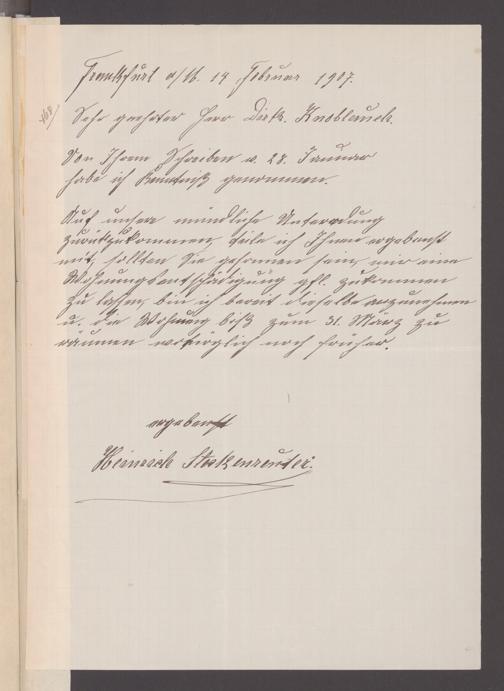 Frankfurt a/M. 14 Februar 1907.
168
Sehr geehrter Herr Direk. Knoblauch.
Von Ihrem Schreiben v. 28. Januar
habe ich Kenntniß genommen.
Auf unsere mündliche Unterredung
zurückzukommen, teile ich Ihnen ergebenst
mit, sollten Sie gesonnen sein, mir eine
Wohnungsentschädigung gfl. zukommen
zu lassen, bin ich bereit dieselbe anzunehmen
u. die Wohnung biß zum 31. März zu
räumen womöglich noch früher.
ergebenst
Heinrich